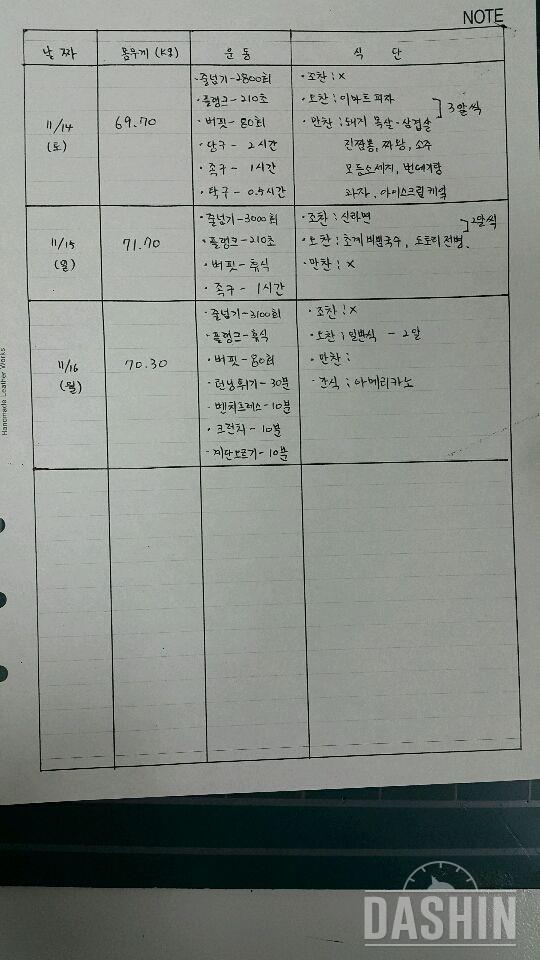 NOTE
날짜 몸무게 (kg) 운동 식단
11/14
(토)
69.70
· 줄넘기 - 2800회
· 플랭크 - 210초
· 버핏 - 80회
· 당구 - 2시간
· 족구 - 1시간
· 탁구 - 0.5시간
· 조찬 : x
· 오찬 : 이마트 피자
· 만찬 : 돼지 목살·삼겹살
진짬뽕, 짜왕, 소주
모듬소세지, 번데기탕
과자, 아이스크림 케익
3알씩
11/15
(일)
71.70
· 줄넘기 - 3000회
· 플랭크 - 210초
· 버핏 - 휴식
· 족구 - 1시간
· 조찬 : 신라면
· 오찬 : 조개비빔국수, 도토리전병.
· 만찬 : x
2알씩
11/16
(월)
70.30
· 줄넘기 - 3100회
· 플랭크 - 휴식
· 버핏 - 80회
· 런닝뛰기 - 30분
· 벤치프레스 - 10분
· 크런치 - 10분
· 계단오르기 - 10분
· 조찬 : x
· 오찬 : 일반식 - 2알
· 만찬 :
· 간식 : 아메리카노
Handmade Leather Works
DASHIN